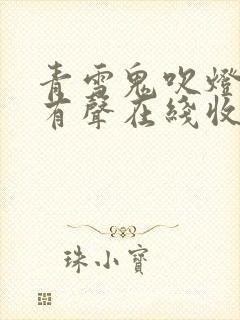 青雪鬼吹燈
有聲在綫收
珠小寶